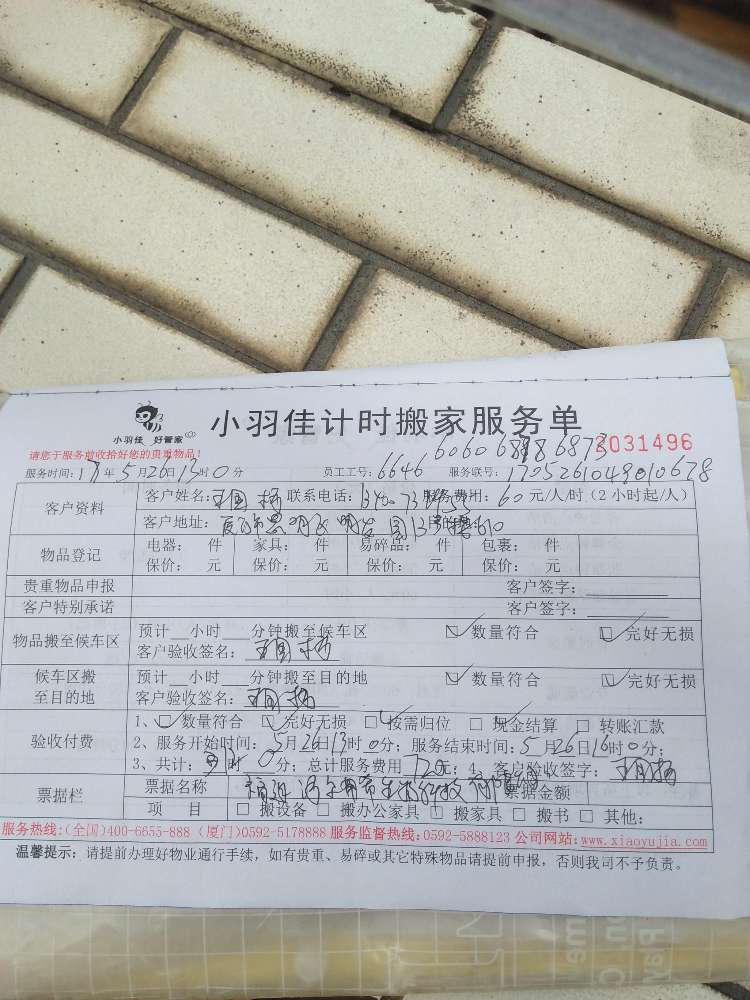 小羽佳 好管家
小羽佳计时搬家服务单
请您于服务前收拾好您的贵重物品!
6060 6878
2031496
服务时间:17年5月26日13时0分 员工工号:6646 服务联号:
客户资料 客户姓名: 联系电话: 服务费用:60元/人/时(2小时起/人)
客户地址:
物品登记 电器: 件 家具: 件 易碎品: 件 包裹: 件
保价: 元 保价: 元 保价: 元 保价: 元
贵重物品申报 客户签字:
客户特别承诺 客户签字:
物品搬至候车区 预计__小时___分钟搬至候车区 数量符合 完好无损
客户验收签名:
候车区搬至目的地 预计__小时___分钟搬至目的地 数量符合 完好无损
客户验收签名:
验收付费 1、数量符合 完好无损 按需归位 现金结算 转账汇款
2、服务开始时间:5月26日13时0分;服务结束时间:5月26日16时0分;
3、共计:3时0分;总计服务费用720元;4、客户验收签字:
票据栏 票据名称 票据金额
项 目 搬设备 搬办公家具 搬家具 搬书 其他:
服务热线:(全国)400-6655-888 (厦门)0592-5178888 服务监督热线:0592-5888123 公司网站:www.xiaoyujia.com
温馨提示:请提前办理好物业通行手续,如有贵重、易碎或其它特殊物品请提前申报,否则我司不予负责。